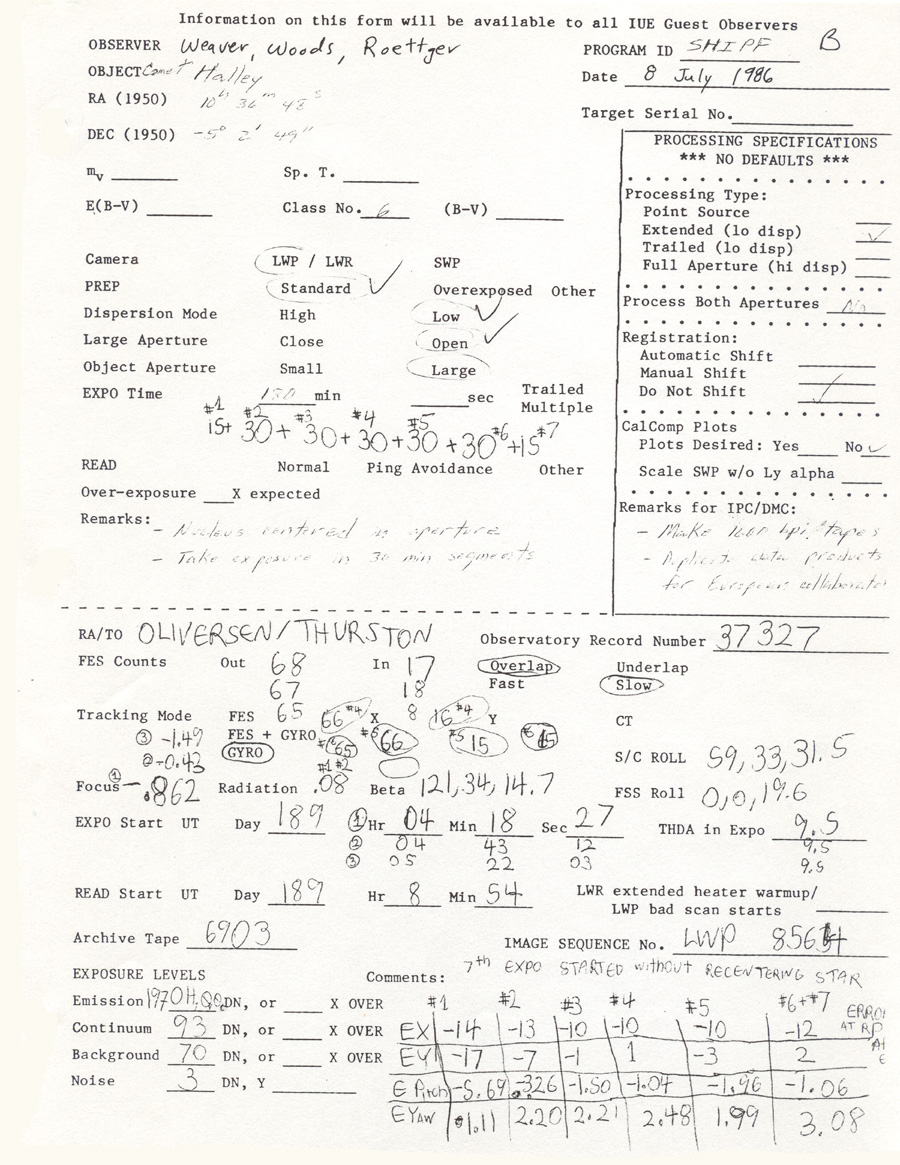 Information on this form will be available to all IUE Guest Observers
OBSERVER Weaver, Woods, Roettger PROGRAM ID SHIPF B
OBJECT Comet Halley Date 8 July 1986
RA (1950) 10h 36m 48s
Target Serial No.
DEC (1950) -5° 2' 49"
PROCESSING SPECIFICATIONS
*** NO DEFAULTS ***
mv Sp. T.
Processing Type:
E(B-V) Class No. 6 (B-V)
Point Source
Extended (lo disp) ✓
Trailed (lo disp)
Full Aperture (hi disp)
Camera LWP / LWR SWP
PREP Standard ✓ Overexposed Other
Process Both Apertures No
Dispersion Mode High Low ✓
Large Aperture Close Open ✓
Registration:
Automatic Shift
Object Aperture Small Large
Manual Shift
Do Not Shift ✓
EXPO Time 180 min sec Trailed
Multiple
#1 #2 #3 #4 #5 #6 #7
15+ 30+ 30+ 30+30 +30 +15
CalComp Plots
Plots Desired: Yes No ✓
READ Normal Ping Avoidance Other
Scale SWP w/o Ly alpha
Over-exposure X expected
Remarks for IPC/DMC:
Remarks: - Nucleus centered in aperture
- Take exposure in 30 min segments
- Make 1600 bpi tapes
- Duplicate data products
for European collaborator
RA/TO OLIVERSEN/THURSTON Observatory Record Number 37327
FES Counts Out 68 In 17 Overlap Underlap
67 18 Fast Slow
Tracking Mode FES 65 66 #4 X 8 16 #4 Y CT
③ -1.49 FES + GYRO #5 66 #5 15 #6 15
② -0.43 GYRO #6 65 S/C ROLL 59,33,31.5
#1 #2
Focus ① -.862 Radiation .08 Beta 121,34,14.7 FSS Roll 0,0,19.6
EXPO Start UT Day 189 ① Hr 04 Min 18 Sec 27 THDA in Expo 9.5
② 04 43 12 9.5
③ 05 22 03 9.5
READ Start UT Day 189 Hr 8 Min 54 LWR extended heater warmup/
LWP bad scan starts
Archive Tape 6903 IMAGE SEQUENCE No. LWP 8564
EXPOSURE LEVELS Comments: 7th EXPO STARTED without RECENTERING STAR
Emission 197 DN, or X OVER #1 #2 #3 #4 #5 #6+#7 ERROR
AT RP
Continuum 93 DN, or X OVER EX -14 -13 -10 -10 -10 -12
Background 70 DN, or X OVER EY -17 -7 -1 1 -3 2
Noise 3 DN, Y E Pitch -5.69 -.326 -1.50 -1.04 -1.96 -1.06
E YAW 1.11 2.20 2.21 2.48 1.99 3.08